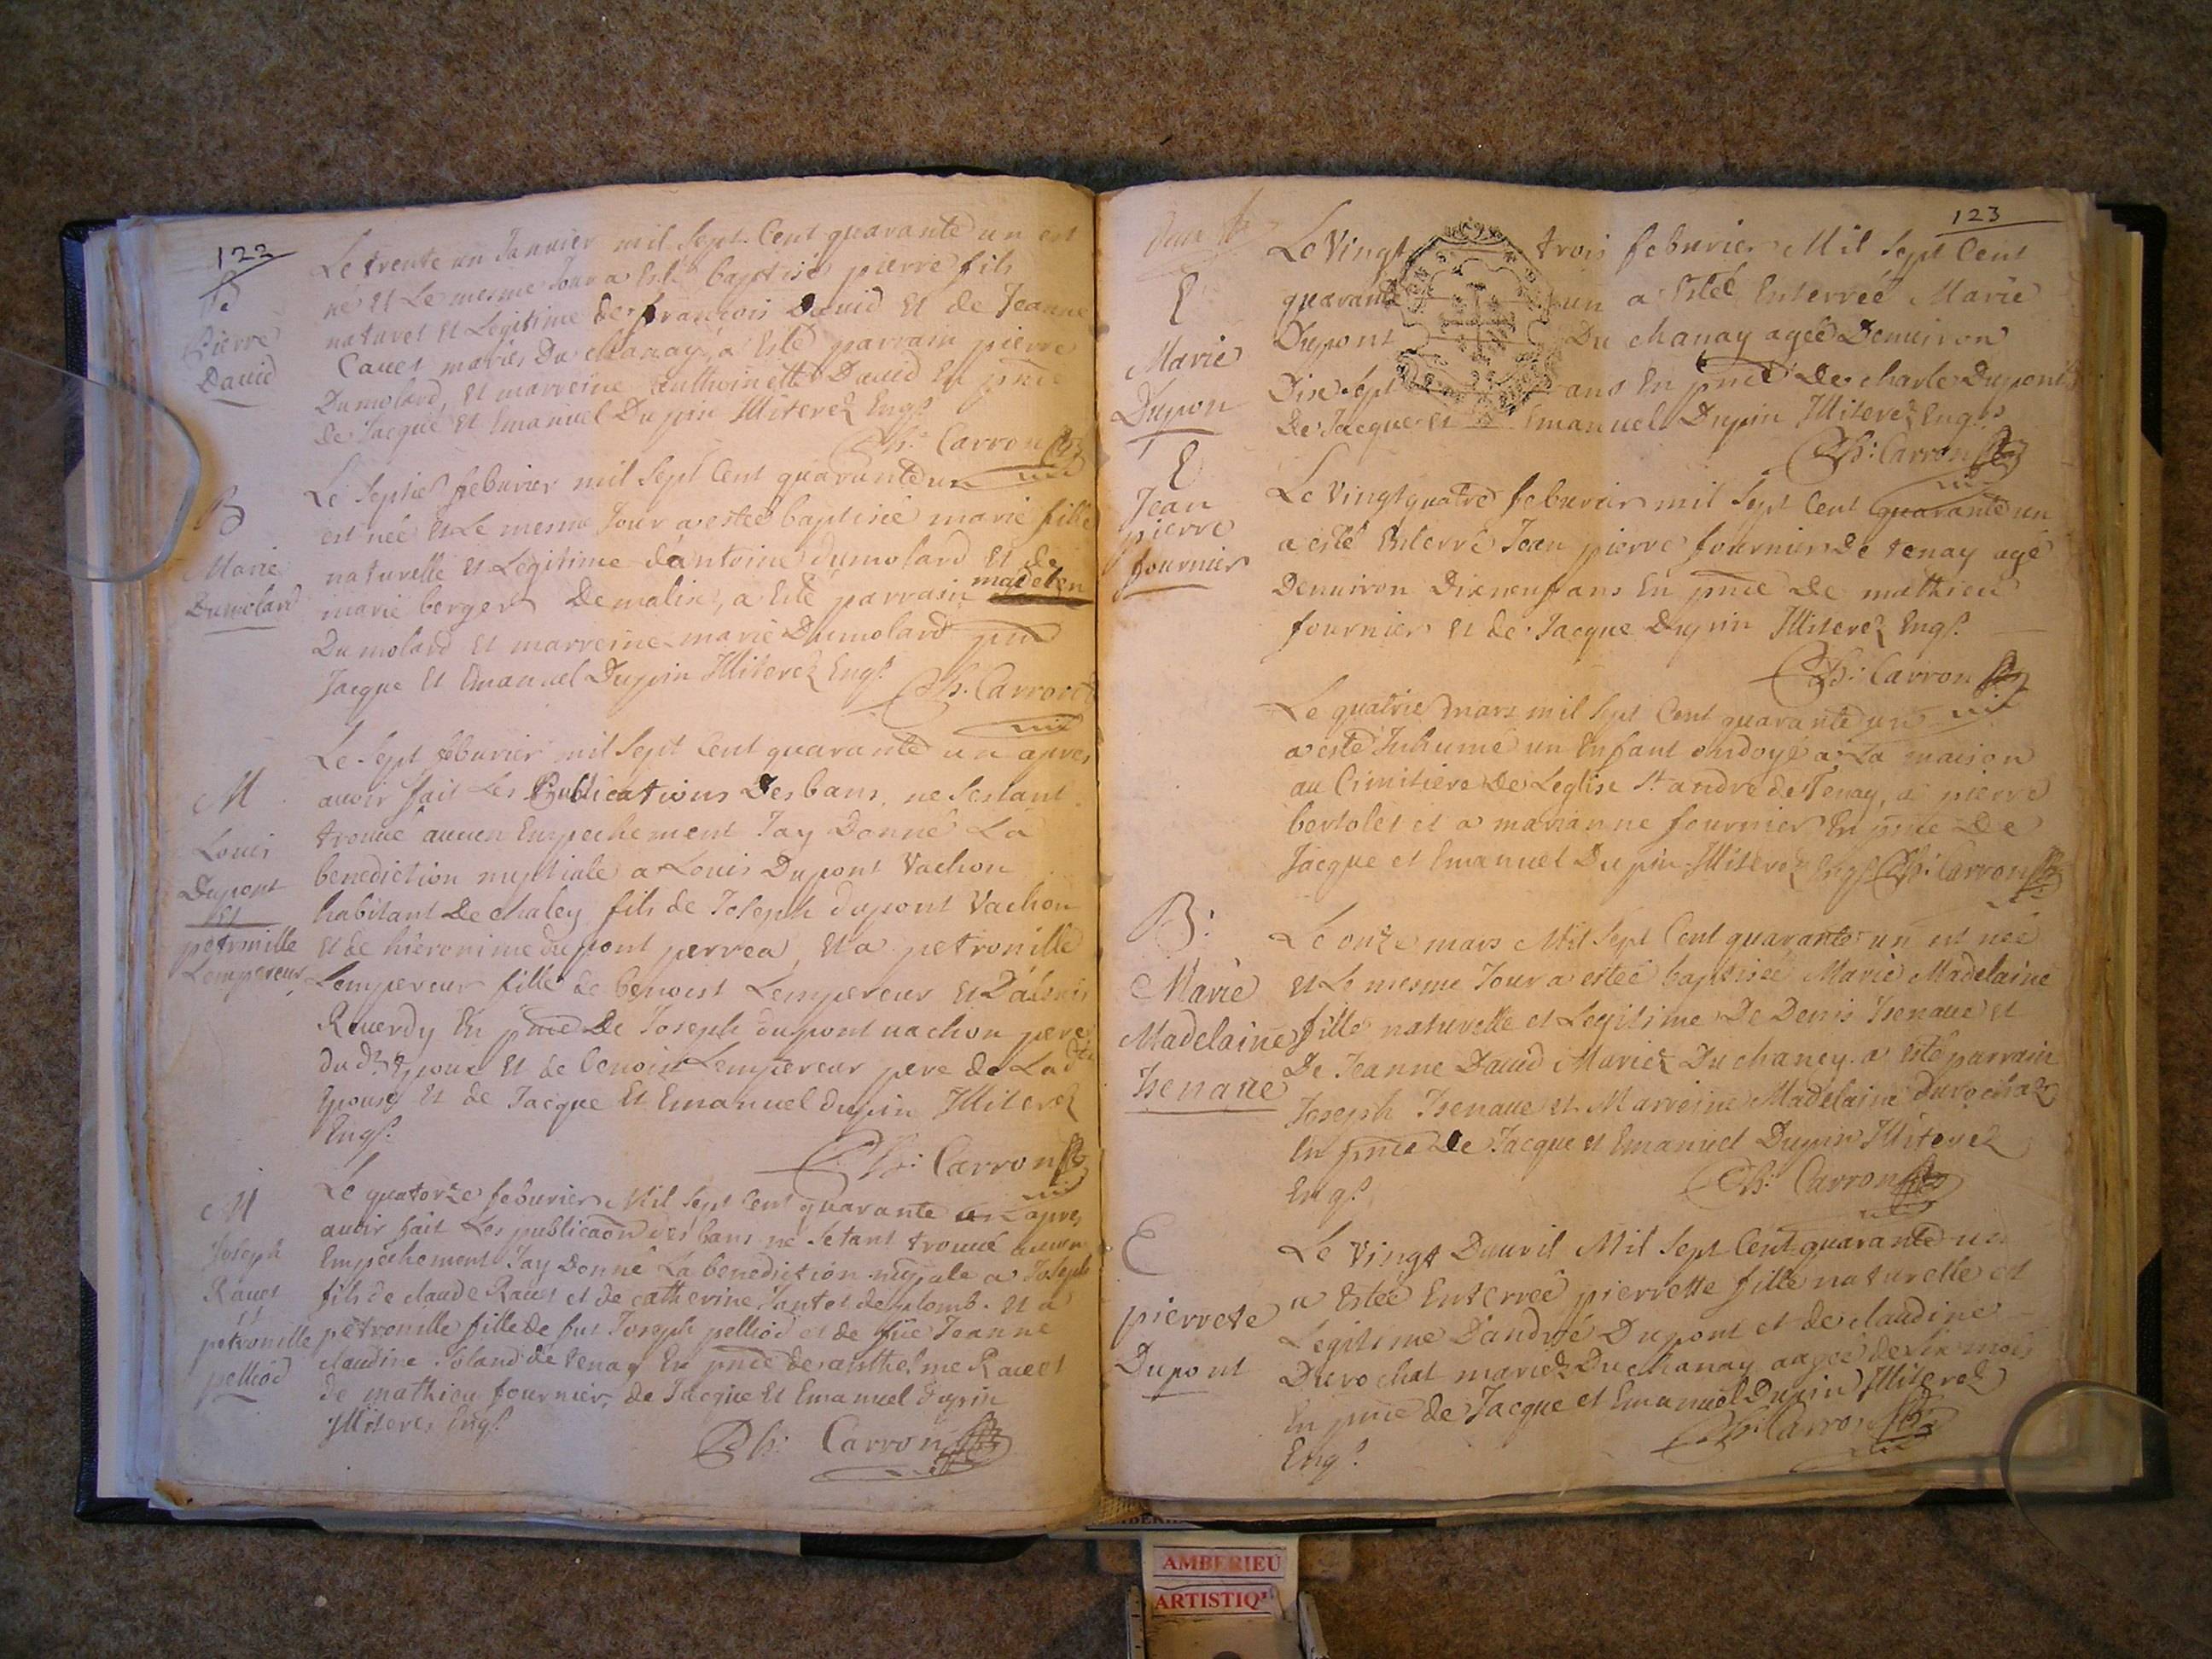 122
Pierre
David
Le trente un Janvier mil sept Cent quarante un est
né et Le mesme Jour a Esté baptisé pierre fils
naturel et Legitime de francois David et de Jeanne
Cauet mariés Du chanay, a Esté parrain pierre
Dumolard, et marreine anthoinette David En pnce
de Jacque et Emanuel Dupin Illiterez Engs.
Ph: Carron
B
Marie
Dumolard
Le Septie feburier mil sept Cent quarante un
est née et Le mesme Jour a estée baptisée marie fille
naturelle et Legitime d'antoine dumolard et de
marie berger De malix, a Esté parrain madelen
Dumolard et marreine marie Dumolard pnce
Jacque et Emanuel Dupin Illiterez Engs.
Ph: Carron
M
Louis
Dupont
Et
petronille
Lempereur
Le Sept feburier mil sept Cent quarante un apres
auoir fait Les Publications Des bans, ne Sestant
trouué aucun Empechement Jay Donné La
benediction nuptiale a Louis Dupont Vachon
habitant De chaley fils de Joseph dupont Vachon
et de hieronime dupont perrea, et a petronille
Lempereur fille de benoist Lempereur et D'
Reuerdy En pnce De Joseph dupont uachon pere
du dt Epoux et de benoist Lempereur pere de La dte
Epouse et de Jacque Et Emanuel dupin Illiterez
Engs.
Ph: Carron
M
Joseph
Rauet
et
petronille
pelliod
Le quatorze feburier Mil sept Cent quarante un apres
auoir fait Les publicaon des bans ne Setant trouué aucun
Empechement Jay Donné La benediction nupale a Joseph
fils de claude Rauet et de catherine Jantet de plomb. et a
petronille fille de fut Joseph pelliod et de fue Jeanne
claudine Joland de tenay En pnce de anthelme Rauet
de mathieu fournier, de Jacque Et Emanuel dupin
Illiteres Engs.
Ph: Carron
123
E
Marie
Dupon
Le Vingt trois feburier Mil Sept Cent
quarante un a Estée Enterrée Marie
Dupont Du chanay agée Denuiron
Dix Sept ans En pnce De charle Dupont
De Jacque et Emanuel Dupin Illiterez Engs.
Ph: Carron
E
Jean
pierre
fournier
Le Vingt quatre feburier mil Sept Cent quarante un
a esté Enterré Jean pierre fournier De tenay agé
Denuiron Dixneuf ans En pnce De mathieu
fournier et de Jacque Dupin Illiterez Engs.
Ph: Carron
Le quatrie mars mil sept Cent quarante un
a esté Inhumé un Enfant ondoyé a La maison
au Cimitiere De Leglise St andre de Tenay, a pierre
bertolet et a marianne fournier En pnce De
Jacque et Emanuel Dupin Illiterez Engs. Ph: Carron
B:
Marie
Madelaine
Isenaue
Le onze mars Mil Sept Cent quarante un est née
et Le mesme Jour a estée baptisée Marie Madelaine
fille naturelle et Legitime De Denis Isenaue et
De Jeanne David Mariez Du chaney a esté parrain
Joseph Isenaue et Marreine Madelaine durochaz
En pnce De Jacque et Emanuel Dupin Illiterez
Engs.
Ph: Carron
E
pierrete
Dupont
Le Vingt Dauril Mil Sept Cent quarante un
a Estée Enterrée pierrette fille naturelle et
Legitime D'andré Dupont et de claudine
Durochat mariez Du chanay aagée de six mois
En pnce de Jacque et Emanuel Dupin Illiterez
Engs.
Ph: Carron
AMBERIEU
ARTISTIQ'